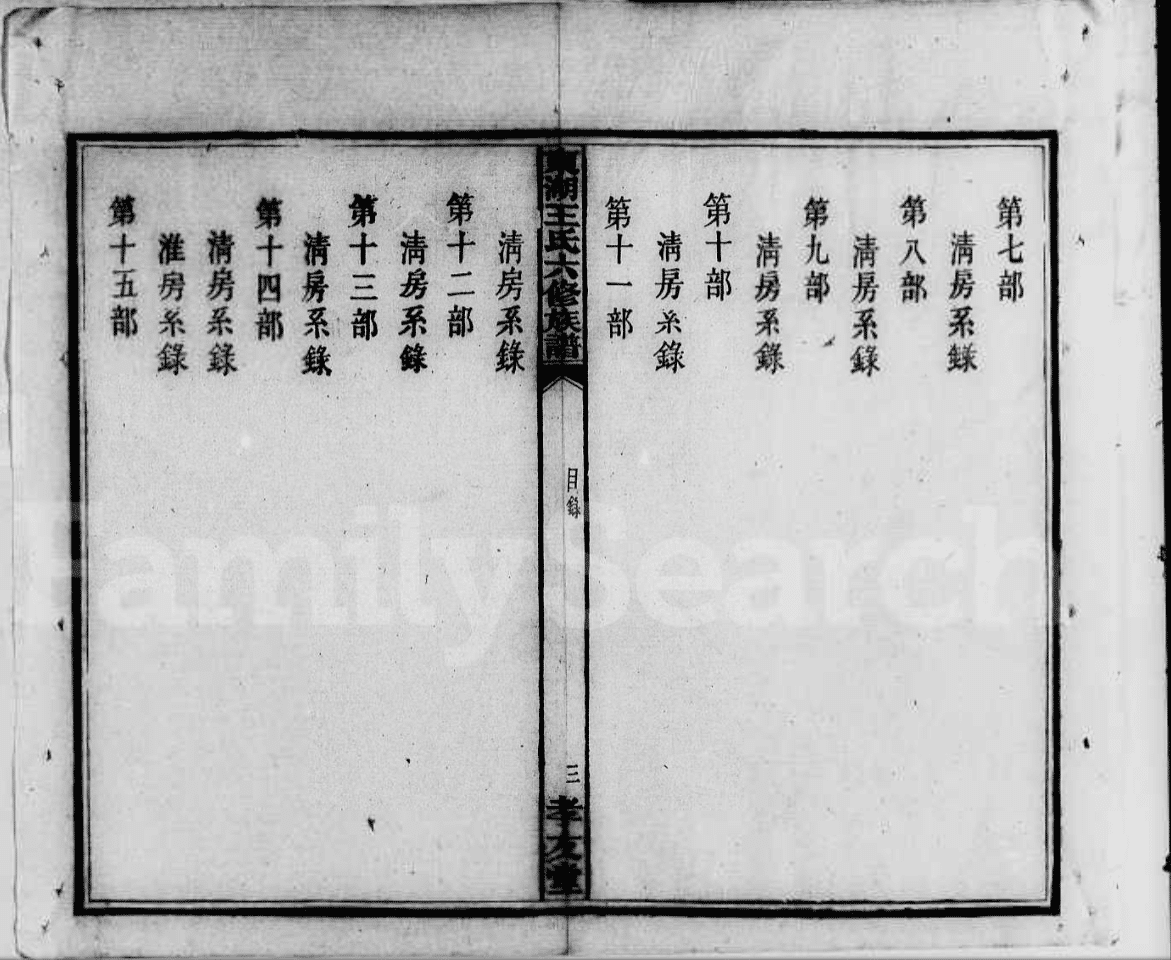 第七部
淸房系錄
第八部
淸房系錄
第九部
淸房系錄
第十部
淸房系錄
第十一部
東湖王氏六修族譜
目錄
三
孝友堂
淸房系錄
第十二部
淸房系錄
第十三部
淸房系錄
第十四部
淸房系錄
淮房系錄
第十五部
FamilySearch